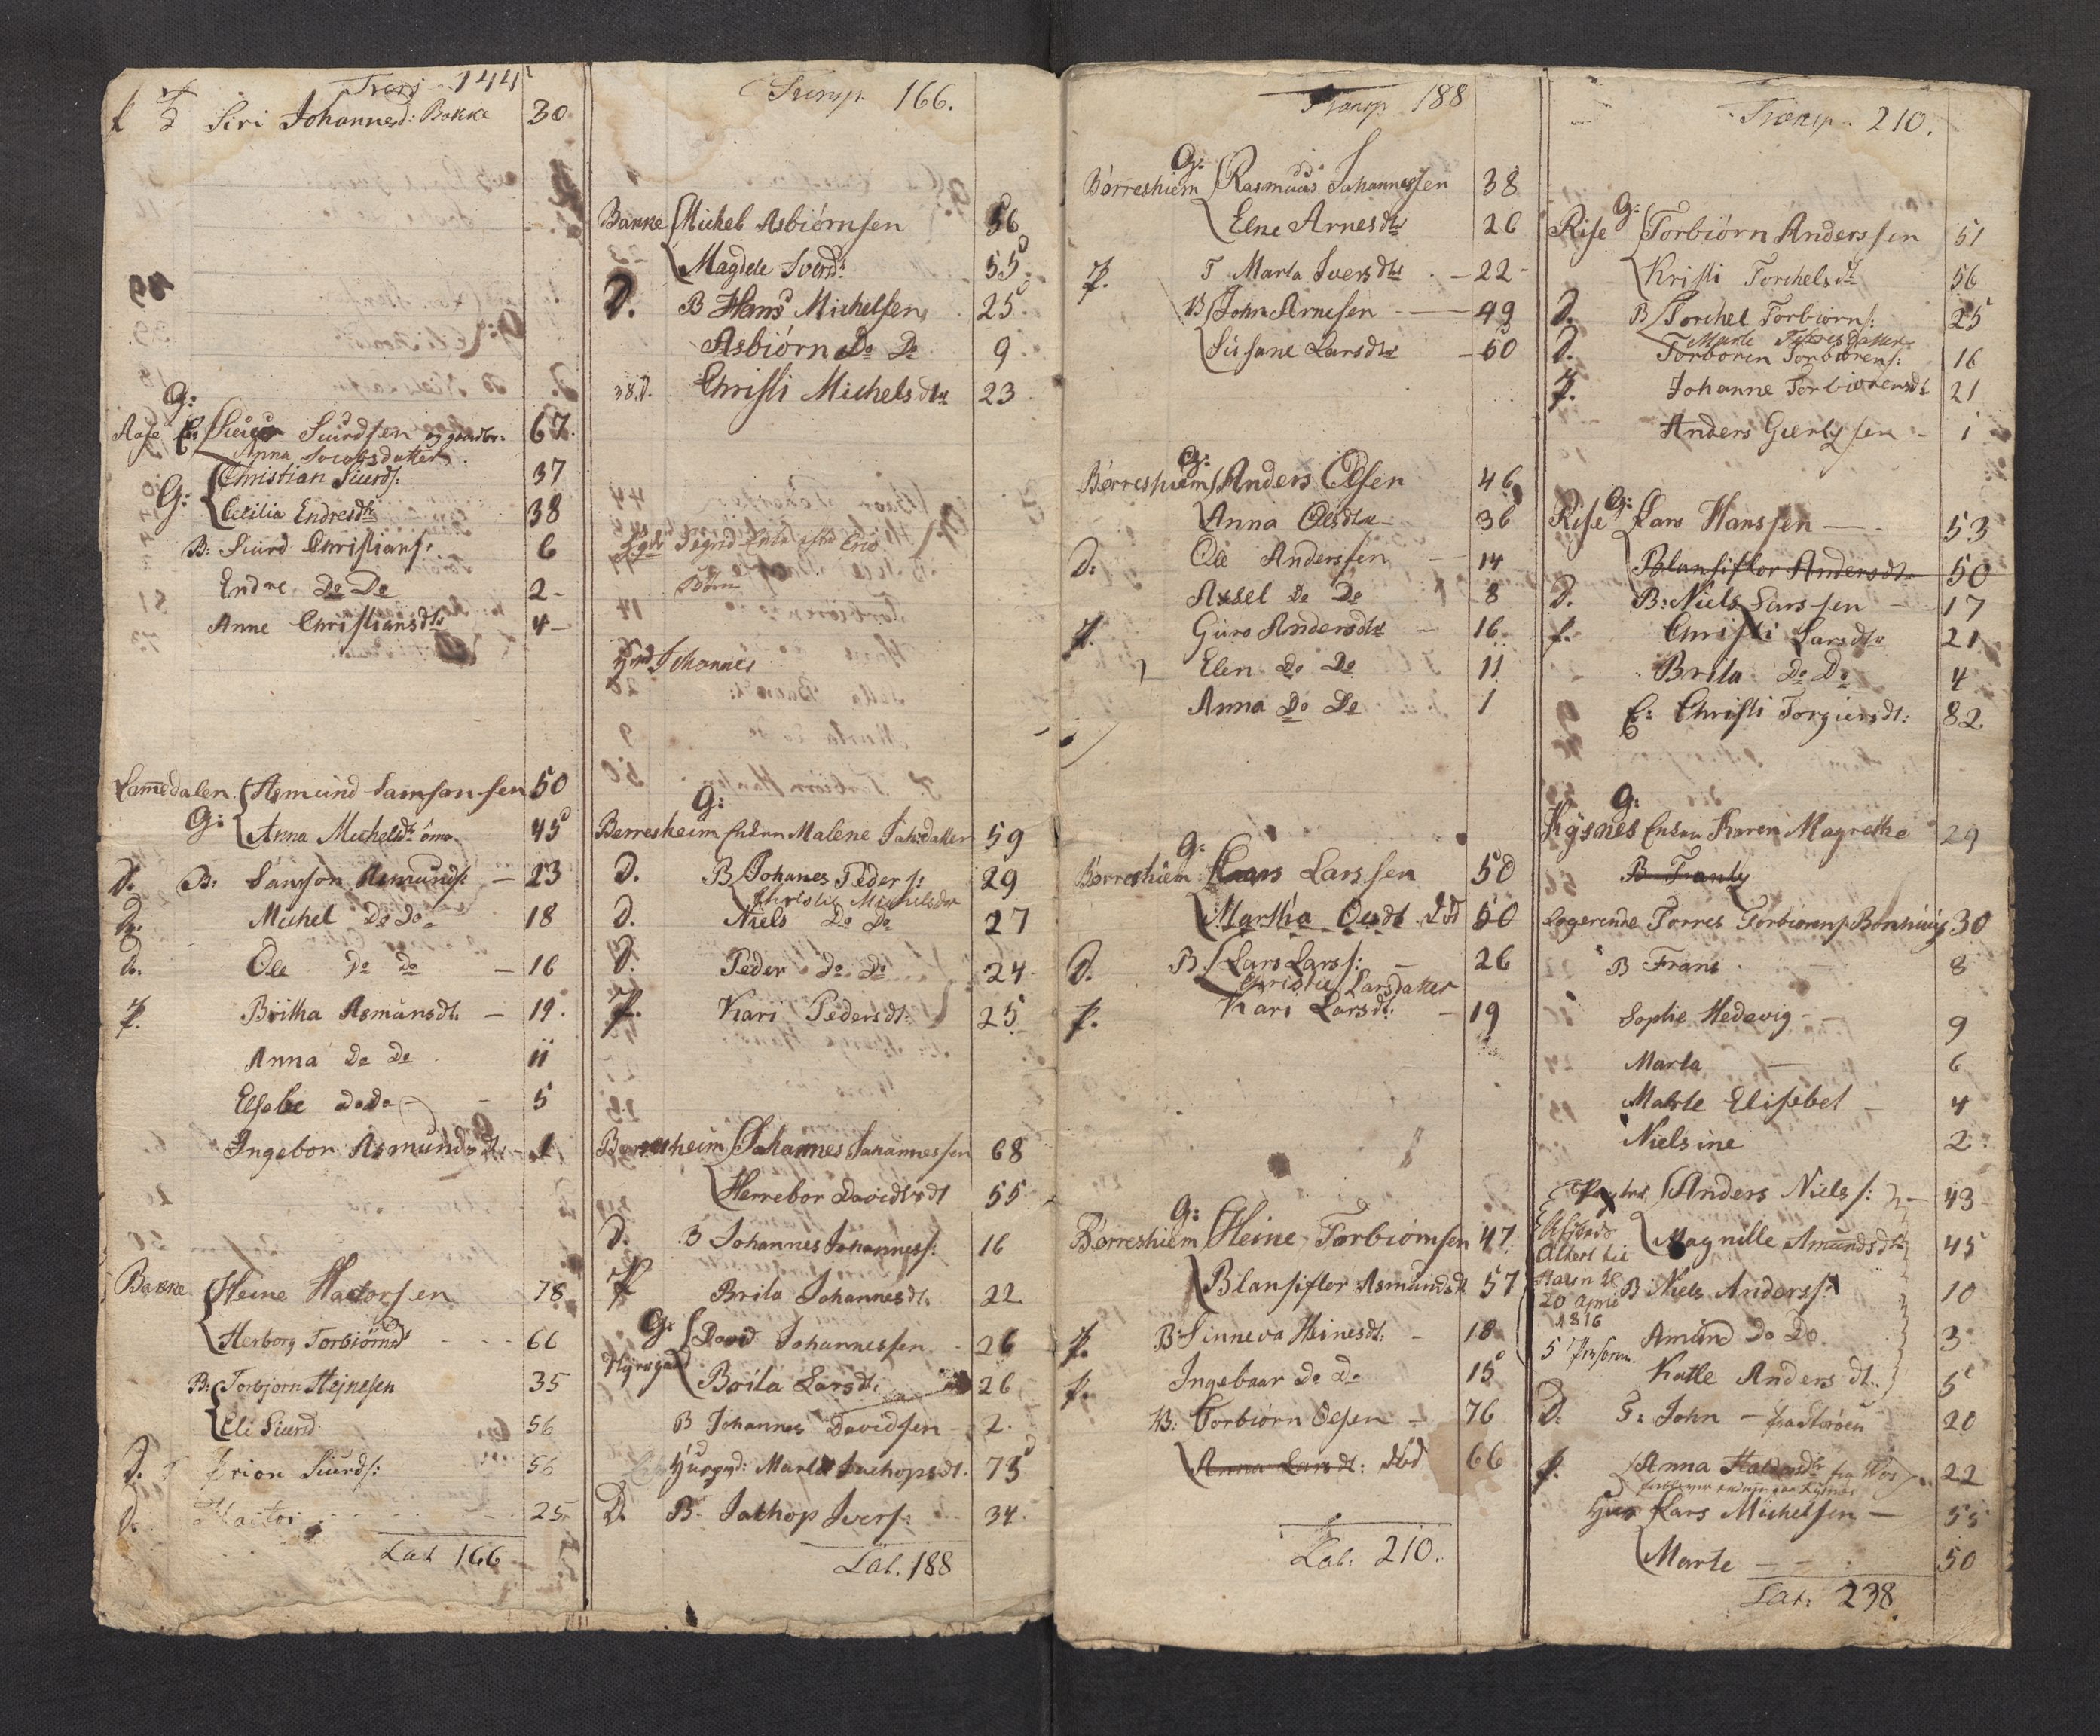 Transp 144
f T Siri Johannesd: Bakke 30
G:
Aase E: Siur Siurdsen 67
Anna Jocobsdatter
Christian Siurds: 37
G: Cecilia Endresdtr 38
B: Siurd Christians: 6
Endre Do Do 2
Anne Christiansdtr 4
Lammedalen Asmund Samsonsen 50
G: Anna Michelsdtr 45
d. B: Samson Asmunds: 23
Michel Do Do 18
d. Ole Do Do 16
f. Britha Asmunsdt. 19.
Anna Do Do 11
Elsebe Do Do 5
Ingebor Asmundsdt. 1
Bakke Heine Hactorsen 78
Herborg Torbiörnsd 66
B: Torbjorn Heinesen 35
Eli Siursd 56
D. Brion Siurds: 56
d. Hactor 25
Lat 166
Transp. 166.
Bakke Michel Asbiörnsen 56
Magdele Iversdr 55
D. B Hans Michelsen 25
Asbiörn Do Do 9
38.D. Christi Michelsdtr 23
Børn
Johannes
G:
Berresheim Enken Malene Johsdatter 59
D. B Johanes Peders: 29
Christie Michelsdtr
D. Niels Do Do 27
D. Peder Do Do 24
f. Kari Pedersdt: 25
Berresheim Johannes Johannessen 68
Herrebor Davidsdt 55
D. B Johannes Johanness: 16
f Brita Johannesdt. 22
G: David Johannessen 26
Brita Larsdt. 26
B Johannes Davidsen 2.
Huusqd: Marta Jachopsdt. 75
D. B. Jachop Ivers: 34
Lat. 188
Transp 188
G:
Börreshiem Rasmus Johannessen 38
Elne Arnesdtr 26
f. T Marta Iversdtr 22
B John Arnesen 49
Susane Larsdtr 50
G:
Börreshiem Anders Olsen 46
Anna Olsdtr 36
D: Ole Anderssen 14
Axsel Do Do 8
f. Guro Andersdtr 16
Elen Do Do 11
Anna Do Do 1
G:
Börreshiem Lars Larssen 50
Martha Olsdt död 50
D. B Lars Larss: 26
Christie Larsdatter
f. Kari Larsdt: 19
G:
Börreshiem Heine Torbiörnsen 47
Blansiflor Asmundsdt 57
f. B Sinneva Heinesdt: 18
f. Ingebaar Do Do 15
B: Torbiörn Olsen 76
Anna Larsdt: död 66
Lat: 210.
Transp. 210.
G:
Rise Torbiörn Anderssen 51
Kristi Torchelsdt 56
D. B Torchel Torbiörns: 25
Marte
D. Torboren Torbiörens: 16
f. Johanne Torbiörensdt 21
Anders Giertssen 1
Rise G: Lars Hanssen 53
Blansiflor Andersdt 50
D. B: Niels Larssen 17
f. Christi Larsdtr 21
Brita Do Do 4
E: Christi Torgiersdt: 82
G:
Kysnes Enken Karen Magrethe 29
B Frants
Logerende Torres Torbiörens: 30
B Frans 8
Sophie Hedevig 9
Marta 6
Marte Elisebet 4
Nielsine 2
Anders Niels: 43
Magnille Amundsdtr 45
20 April B Niels Anderss: 10
1816
Amund Do Do. 3
5 Person. Katle Andersdt. 5
D: T: John fra Storöen 20
f. Anna Haldorsdtr fra Vos 22
Huus Lars Michelsen 55
Marte 50
Lat: 238